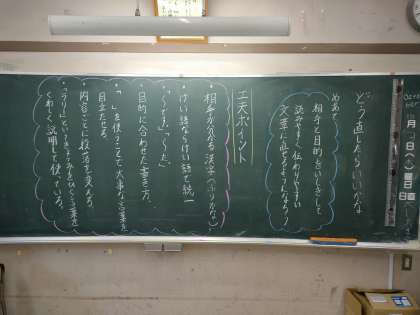 どう直したらいいかな
めあて
相手と目的をいしきして
読みやすく伝わりやすい
文章に直せるようになろう
工夫ポイント
・相手が分かる漢字(ふりがな)
・けい語ならけい語で統一
「〜です」「〜た」
・目的に合わせた書き方
・「 」を使うことで大事な言葉を
目立たせる。
・内容ごとに段落を変える。
くわしく説明して使っている。
月
日